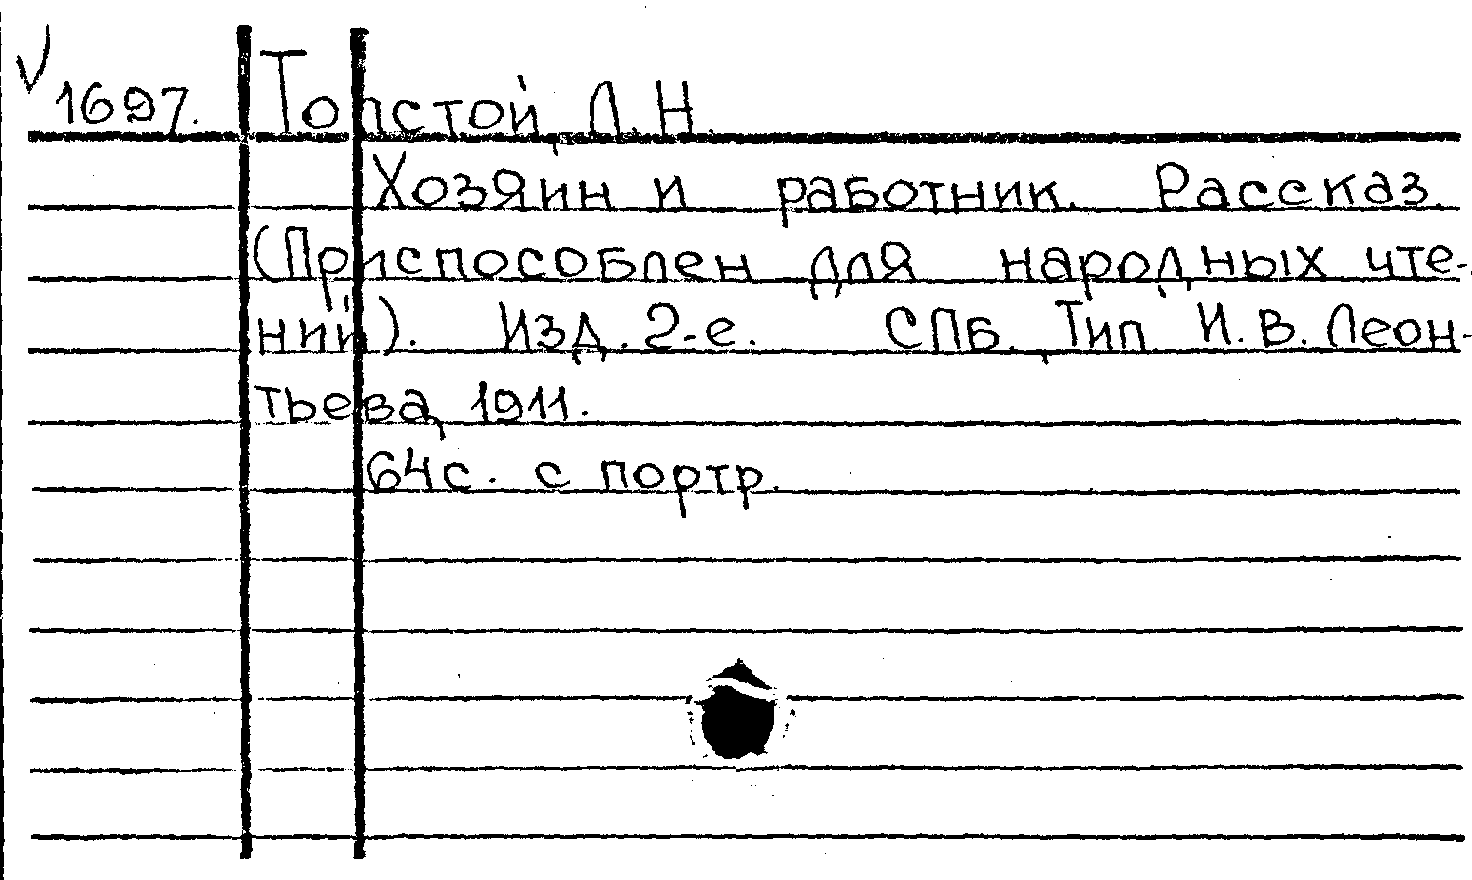 √ 1697. Толстой, Л. Н.
Хозяин и работник. Рассказ.
(Приспособлен для народных чте-
ний). Изд. 2-е. СПБ, Тип И. В. Леон-
тьева, 1911.
64 с. с портр.